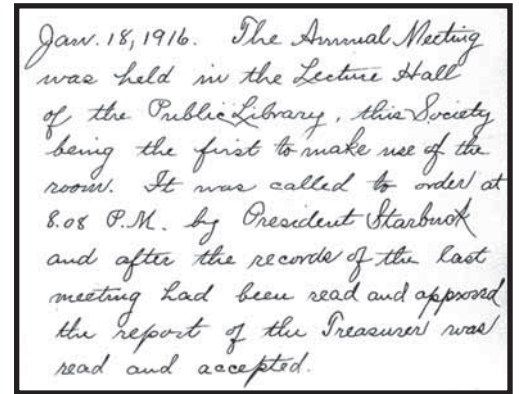 Jan. 18, 1916. The Annual Meeting
was held in the Lecture Hall
of the Public Library, this Society
being the first to make use of the
room. It was called to order at
8.08 P.M. by President Starbuck
and after the records of the last
meeting had been read and approved
the report of the Treasurer was
read and accepted.